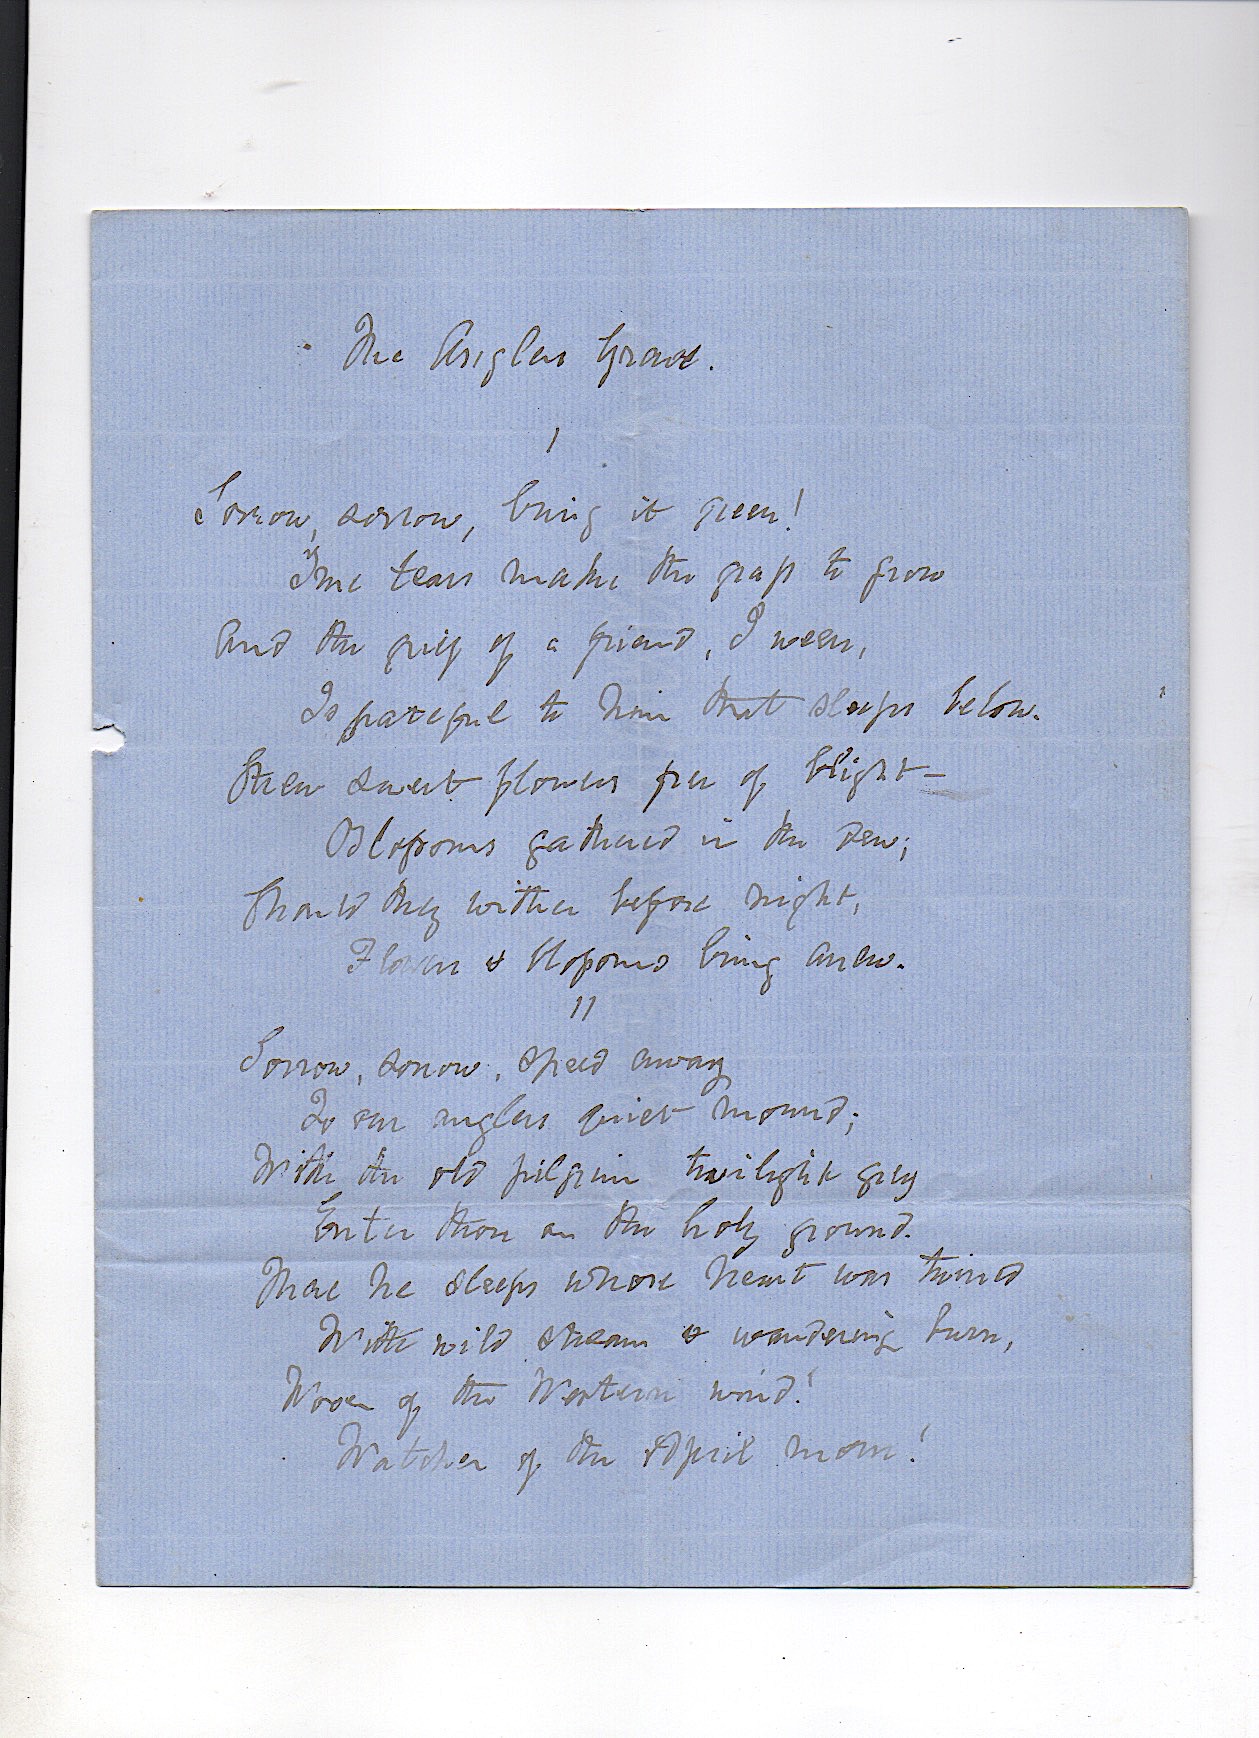 The Anglers Grave.
1
Sorrow, sorrow, bring it green!
True tears make the grass to grow
And the grief of a friend, I ween,
Is grateful to him that sleeps below.
Strew sweet flowers free of blight—
Blossoms gathered in the dew;
Should they wither before night,
Flowers & blossoms bring anew.
11
Sorrow, sorrow, speed away
To our anglers quiet mound;
With the old pilgrim twilight grey
Enter thou on the holy ground.
There he sleeps whose heart was twined
With wild stream & wandering burn,
Wooer of the Western wind!
Watcher of the April morn!